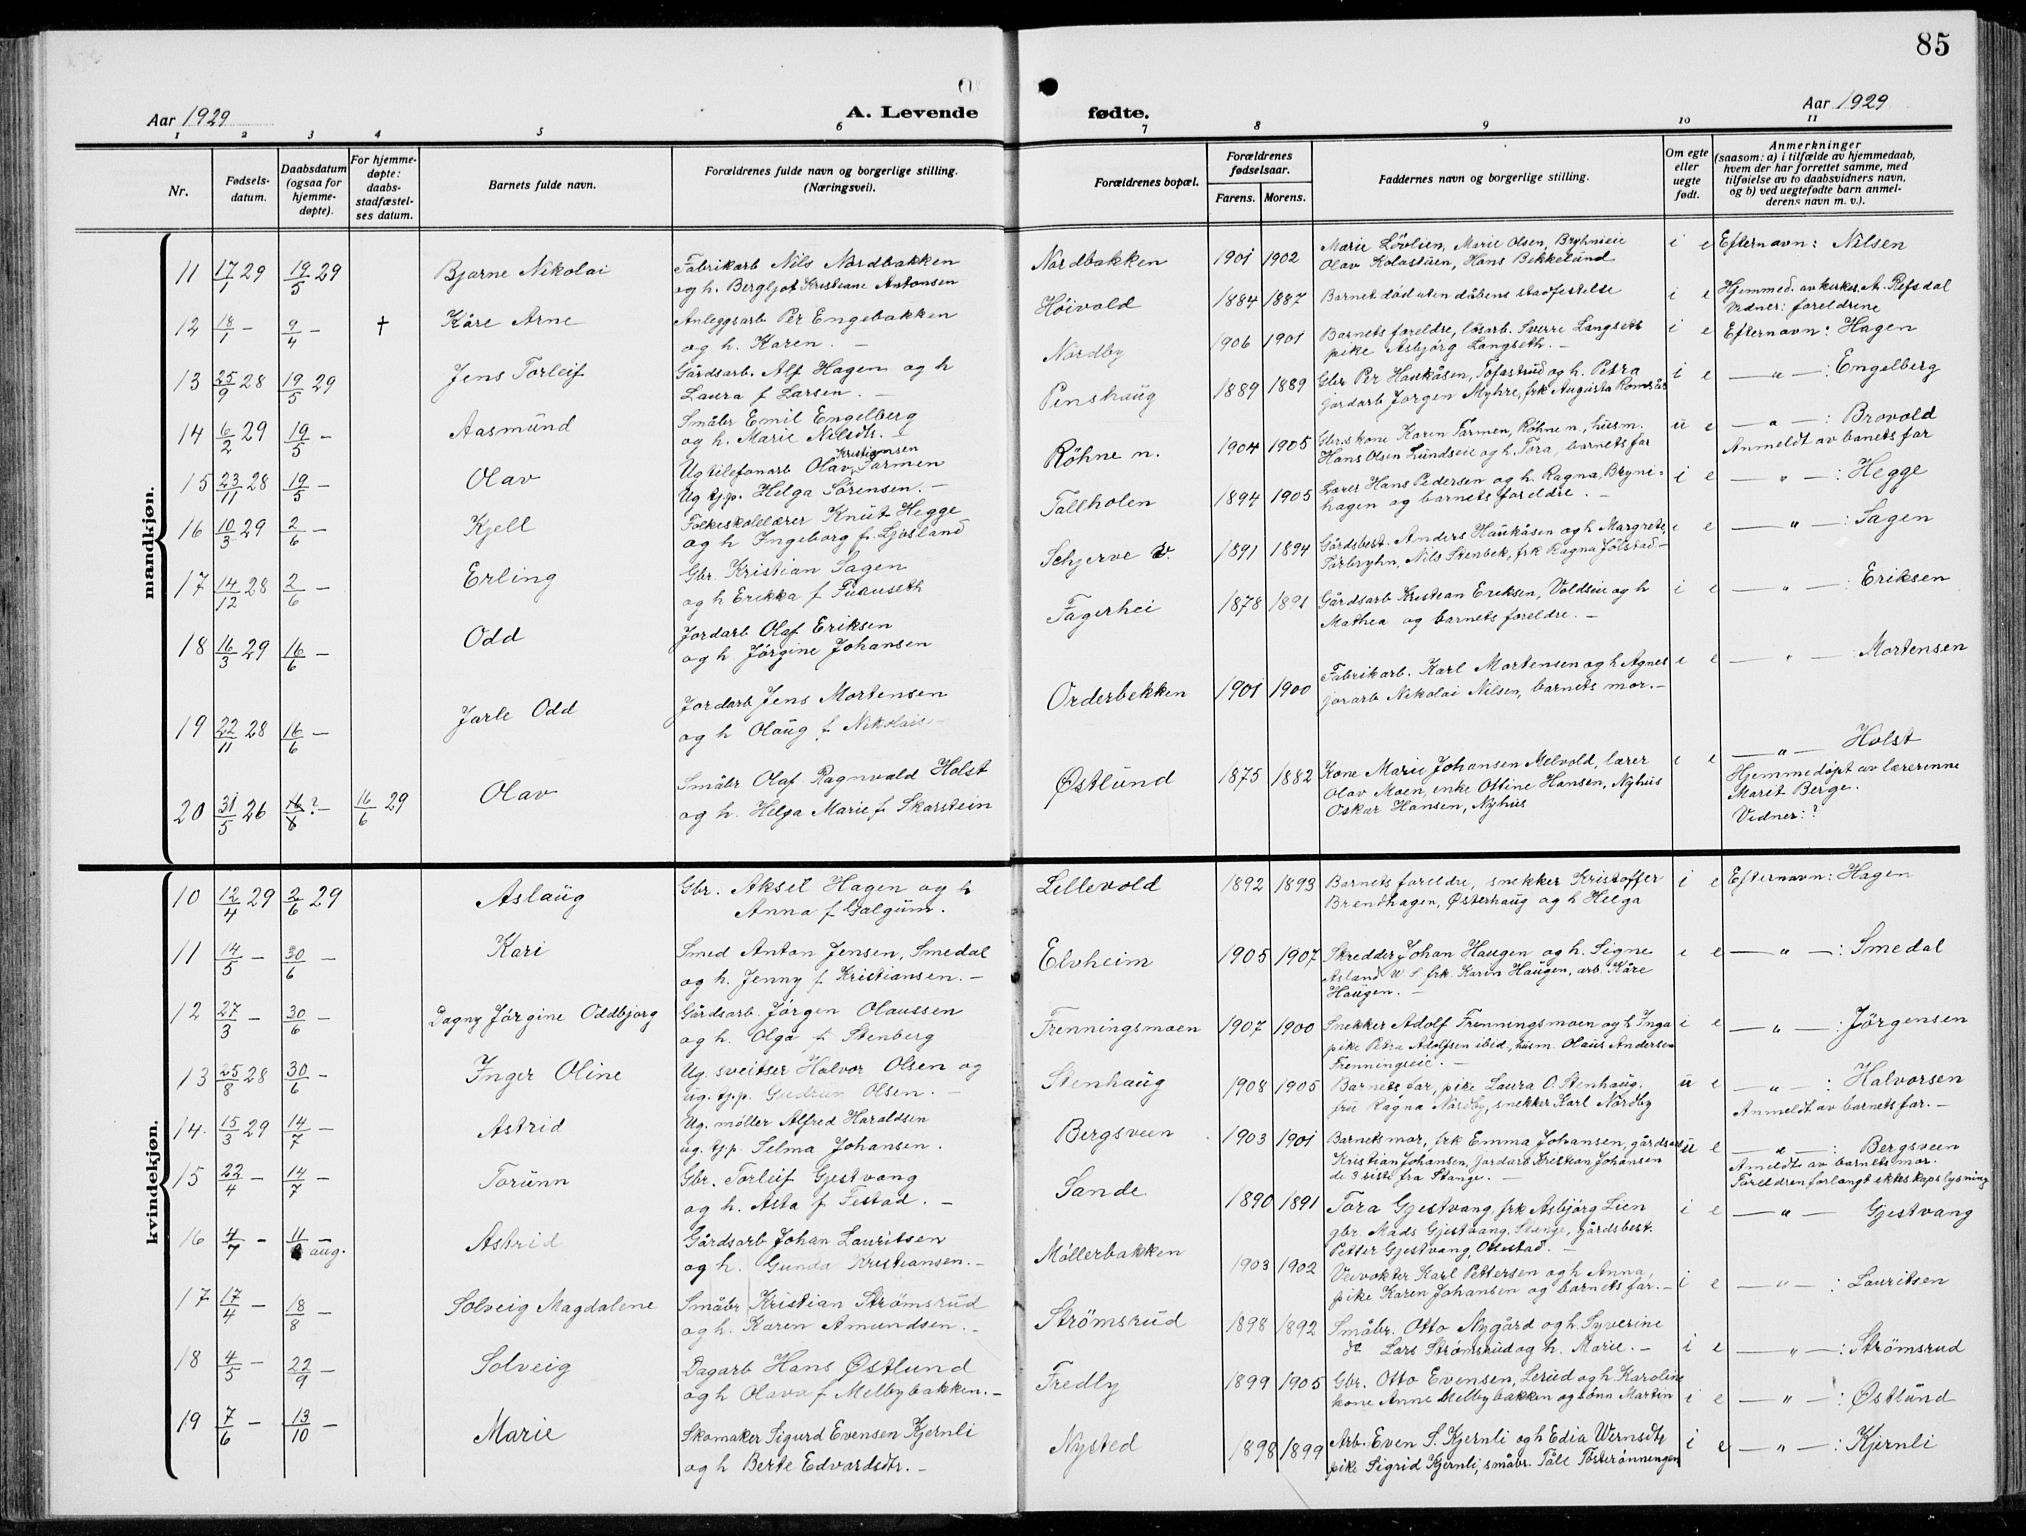 85
Aar 1929
A. Levende
fødte.
Aar 1929
1 2 3 4 5 6 7 8 9 10 11
Nr.
Fødsels-
datum.
Daabsdatum
(ogsaa for
hjemme-
døpte).
For hjemme-
døpte:
daabs-
stadfæstel-
ses datum.
Barnets fulde navn.
Forældrenes fulde navn og borgerlige stilling.
(Næringsvei).
Forældrenes bopæl.
Forældrenes
fødselsaar.
Farens. Morens.
Faddernes navn og borgerlige stilling.
Om egte
eller
uegte
født.
Anmerkninger
(saasom: a) i tilfælde av hjemmedaab,
hvem der har forrettet samme, med
tilføielse av to daabsvidners navn,
og b) ved uegtefødte barn anmel-
derens navn m. v.).
mandkjøn.
11 17/1 29 19/5 29 Bjarne Nikolai
Fabrikarb Nils Nordbakken
og h. Bergljot Kristiane Antonsen
Nordbakken 1901 1902
Marie Lövlien, Marie Olsen, Bryhnieie
Olav Kolostuen, Hans Bekkelund
i e Efternavn: Nilsen
12 18/1 - 9/4 - † Kåre Arne
Anleggsarb Per Engebakken
og h. Karen. -
Höivold 1884 1887
Barnet död uten dåbens stadfestelse
i e Hjemmed. av kirkes. A. Refsdal
Vidner: foreldrene
13 25/9 28 19/5 29 Jens Torleif
Gårdsarb. Alf Hagen og h
Laura f Larsen. -
Nordby 1906 1901
Barnets foreldre, lösarb. Sverre Langseth
pike Asbjörg Langseth. -
i e Efternavn: Hagen
14 6/2 29 19/5 - Aasmund
Småbr Emil Engelberg
og h. Marie Nilsdtr. -
Penshaug 1889 1889
Gbr Per Haukåsen, Tofastrud og h. Petra
jordarb Jörgen Myhre, frk Augusta Romsås
i e - " - : Engelberg
15 23/11 28 19/5 - Olav
Kristiansen
Ug telefonarb Olav Tarmen
Ug tj.p. Helga Sörensen. -
Röhne n. 1904 1905
Gbr.s kone Karen Tarmen, Röhne n., husm.
Hans Olsen Lundseie og h. Tora, barnets far
u e - " - : Brovold
Anmeldt av banets far
16 10/3 29 2/6 - Kjell
Folkeskolelærer Knut Hegge
og h Ingeborg f. Ljosland
Tallholen 1894 1905
Lærer Hans Pedersen og h. Ragna, Bryni-
hagen og barnets foreldre. -
i e - " - : Hegge
17 14/12 28 2/6 - Erling
Gbr. Kristian Sagen
og h Erikka f Furuseth
Schjerve v. 1891 1894
Gårdsbest. Anders Haukåsen og h Margrete,
Sörbryhn, Nils Stenbek, frk Ragna Jölstad -
i e - " - : Sagen
18 16/3 29 16/6 - Odd
Jordarb Olaf Eriksen
og h Jörgine Johansen
Fagerhei 1878 1891
Gårdsarb Kristian Eriksen, Voldseie og h
Mathea og barnets foreldre. -
i e - " - : Eriksen
19 22/11 28 16/6 - Jarle Odd
Jordarb Jens Mortensen
og h Olaug f Nikolais -
Orderbekken 1901 1900
Fabrikarb. Karl Mortensen og h Agnes
jorarb Nikolai Nilsen, barnets mor. -
i e - " - : Mortensen
20 31/5 26 16/8 ? - 16/6 29 Olav
Småbr Olaf Ragnvald Holst
og h. Helga Marie f Skarstein
Østlund 1875 1882
Kone Marie Johansen Melvold, lærer
Olav Moen, enke Ottine Hansen, Nyhus
Oskar Hansen, Nyhus
i e - " - Holst
Hjemmedöpt av lærerinne
Marit Berge.
Vidner: ?
kvindekjøn.
10 12/4 29 2/6 29 Aslaug
Gbr. Aksel Hagen og h
Anna f Galgum.
Lillevold 1892 1893
Barnets foreldre, snekker Kristoffer
Brendhagen, Østerhaug og h Helga
i e Efternavn: Hagen
11 14/5 - 30/6 - Kari
Smed Anton Jensen, Smedal
og h. Jenny f Kristiansen. -
Elvheim 1905 1907
Skredder Johan Haugen og h. Signe
Åsland U S frk Karin Haugen, arb. Kåre
Haugen. -
i e - " - : Smedal
12 27/3 - 30/6 - Dagny Jörgine Oddbjorg
Gårdsarb. Jörgen Olaussen
og h. Olga f Stenberg
Frenningsmoen 1907 1900
Snekker Adolf Frenningsmoen og h Inga
pike Petra Adolfsen ibid, husm. Olaus Andersen
Frenningseie. -
i e - " - : Jörgensen
13 25/8 28 30/6 - Inger Oline
Ug. sveitser Halvor Olsen og
ug. tj.p. Gudrun Olsen. -
Stenhaug 1908 1905
Barnets far, pike Laura O. Stenhaug.
fru Ragna Nordby, snekker Karl Nordby
u e - " - : Halvorsen
Anmeldt av barnets far. -
14. 15/3 29 14/7 - Astrid
Ug. möller Alfred Haraldsen
ug. tj.p. Selma Johansen.
Bergsveen 1903 1901
Barnets mor, frk Emma Johansen, gårdsarb
Kristian Johansen, jordarb Kristian Johansen
de 3 siste fra Stange. -
u e - " - : Bergsveen
Anmeldt av barnets mor.
Foreldren forlangt ekteskapslysning
15 22/4 - 14/7 - Torunn
Gbr. Torleif Gjestvang
og h. Asta f Fistad. -
Sande 1890 1891
Tora Gjestvang frk Asbjörg Lien
gbr. Mads Gjestvang, Stange, gårdsbest.
Petter Gjestvang, Ottestad. -
i e - " - Gjestvang
16 4/7 - 11/aug. - Astrid
Gårdsarb Johan Lauritsen
og h. Gunda Kristiansen. -
Møllerbakken 1903 1902
Veivokter Karl Pettersen og h Anna,
pike Karen Johansen og barnets far. -
i e - " - : Lauritsen
17 17/4 - 18/8 - Solveig Magdalene
Småbr Kristian Strømsrud
og h. Karen Amundsen. -
Strømsrud 1898 1892
Småbr. Otto Nygård og h. Syverine
do Lars Strømsrud og h. Marie. -
i e - " - : Strømsrud
18 4/5 - 22/9 - Solveig
Dagarb Hans Østlund
og h Olava f Melbybakken. -
Fredly 1899 1905
Gbr. Otto Evensen, Lerud og h. Karoline
kone Anne Melbybakken og sönn Martin
i e - " - : Østlund
19 7/6 - 13/10 - Marie
Skomaker Sigurd Evensen Kjernli
og h Berte Edvardsdtr. -
Nysted 1898 1899
Arb. Even S. Kjernli og h Edia Wernsdtr
pike Sigrid Kjernli, småbr. Påle Tosterönningen
i e - " - : Kjernli